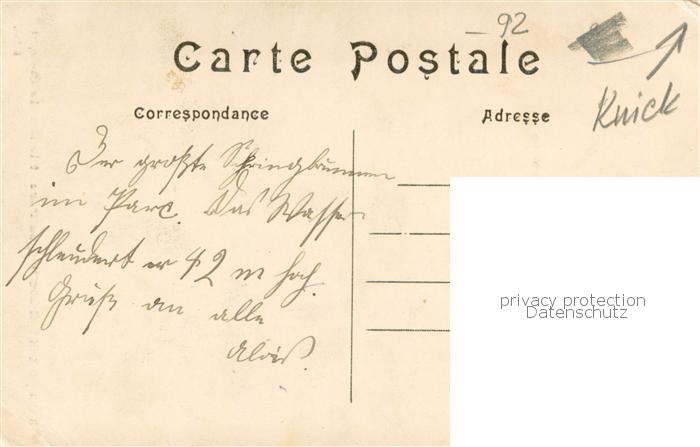 92
Carte Postale
Knick
Correspondance
Adresse
Der größte Springbrunnen
im Parc. Das Wasser
schleudert er 42 m hoch.
Grüße an alle
Alois.
privacy protection
Datenschutz